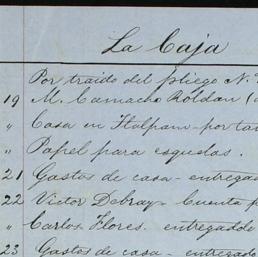 La Caja
Por traido del pliego N.
19 M. Camacho Roldan (
" Casa en Tlalpam - por
" Papel para esquelas.
21 Gastos de casa - entregad
22 Victor Debray - Cuenta p
" Carlos Flores. entregadole
23 Gastos de casa - entregado